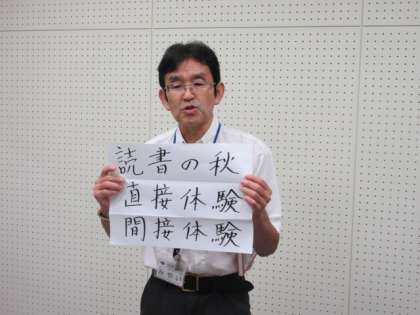 読書の秋
直接体験
間接体験